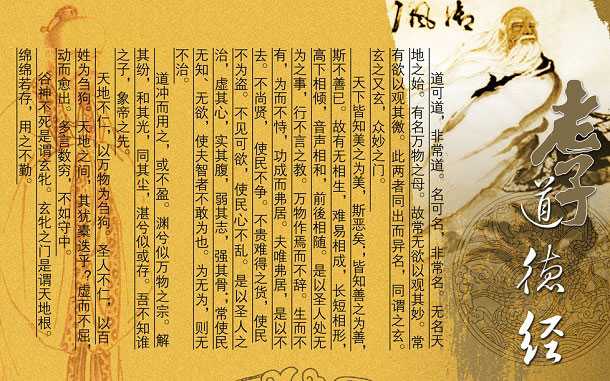 老子
道德经
御风
道可道，非常道。名可名，非常名。无名天
地之始。有名万物之母。故常无欲以观其妙。常
有欲以观其微。此两者同出而异名，同谓之玄。
玄之又玄，众妙之门。
天下皆知美之为美，斯恶矣；皆知善之为善，
斯不善已。故有无相生，难易相成，长短相形，
高下相倾，音声相和，前後相随。是以圣人处无
为之事，行不言之教。万物作焉而不辞。生而不
有，为而不恃，功成而弗居。夫唯弗居，是以不
去。不尚贤，使民不争。不贵难得之货，使民
不为盗。不见可欲，使民心不乱。是以圣人之
治，虚其心，实其腹，弱其志，强其骨；常使民
无知、无欲，使夫智者不敢为也。为无为，则无
不治。
道冲而用之，或不盈。渊兮似万物之宗。解
其纷，和其光，同其尘，湛兮似或存。吾不知谁
之子，象帝之先。
天地不仁，以万物为刍狗。圣人不仁，以百
姓为刍狗。天地之间，其犹橐迭乎？虚而不屈，
动而愈出。多言数穷，不如守中。
谷神不死是谓玄牝。玄牝之门是谓天地根。
绵绵若存，用之不勤。